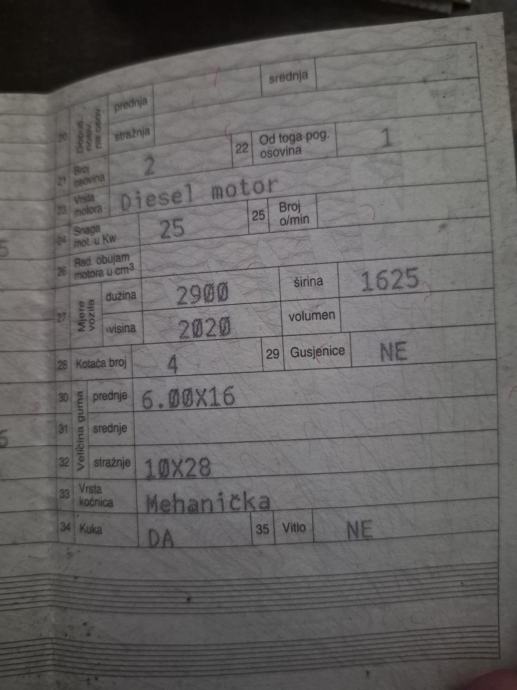 20 Dopuš. nosiv. na osov. prednja srednja
stražnja
21 Broj osovina 2 22 Od toga pog. osovina 1
23 Vrsta motora Diesel motor
24 Snaga mot. u Kw 25 25 Broj o/min
26 Rad. obujam motora u cm3
27 Mjere vozila dužina 2900 širina 1625
visina 2020 volumen
28 Kotača broj 4 29 Gusjenice NE
Veličina guma
30 prednje 6.00X16
31 srednje
32 stražnje 10X28
33 Vrsta kočnica Mehanička
34 Kuka DA 35 Vitlo NE